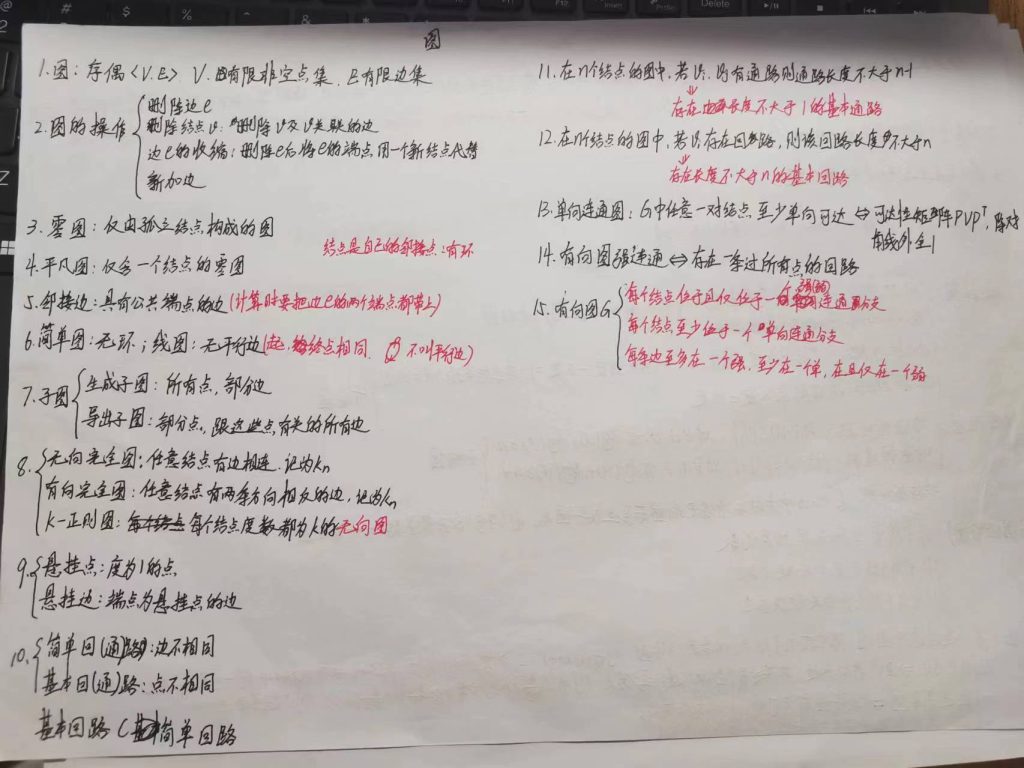 图
1.图：序偶<V.E> V.有限非空点集，E有限边集
2.图的操作
删除边e
删除结点v：删除v及v关联的边
边e的收缩：删除e后将e的端点用一个新结点代替
新加边
3.零图：仅由孤立结点构成的图
结点是自己的邻接点：有环
4.平凡图：仅含一个结点的零图
5.邻接边：具有公共端点的边(计算时要把边e的两个端点都带上)
6.简单图：无环；线图：无平行边(起，终点相同. 不叫平行边)
7.子图
生成子图：所有点，部分边
导出子图：部分点，跟这些点有关的所有边
8.
无向完全图：任意结点有边相连.记为Kn
有向完全图：任意结点有两条方向相反的边，记为Kn
K-正则图：每个结点度数都为K的无向图
9.
悬挂点：度为1的点
悬挂边：端点为悬挂点的边
10.
简单回(通)路：边不相同
基本回(通)路：点不相同
基本回路⊂简单回路
11.在n个结点的图中，若vi，vj有通路则通路长度不大于n-1
存在长度不大于1的基本通路
12.在n个结点的图中，若vi存在回路，则该回路长度不大于n
存在长度不大于n的基本回路
13.单向连通图：G中任意一对结点至少单向可达⇔可达性矩阵PVPᵀ，除对
角线外全1
14.有向图强连通⇔存在一条过所有点的回路
15.有向图G
每个结点位于且仅位于一个强连通分支
每个结点至少位于一个单向连通分支
每条边至多在一个强，至少在一单，在且仅在一个弱